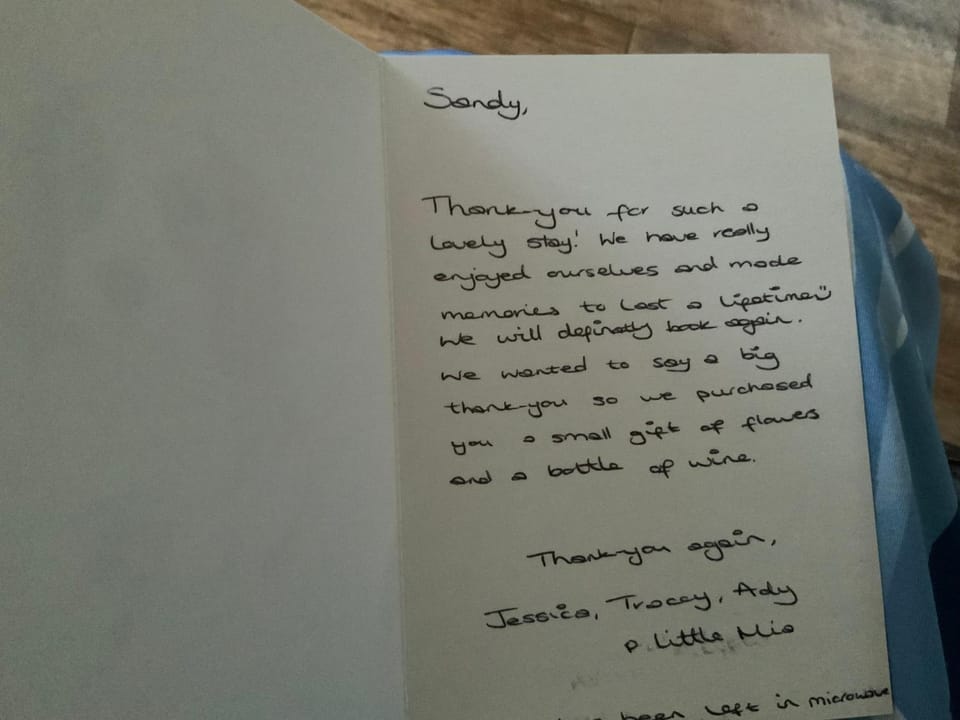 Sandy,
Thank-you for such a
lovely stay! We have really
enjoyed ourselves and made
memories to last a lifetime :)
We will definatly book again.
We wanted to say a big
thank-you so we purchased
you a small gift of flowers
and a bottle of wine.
Thank-you again,
Jessica, Tracey, Ady
& Little Mia
been left in microwave